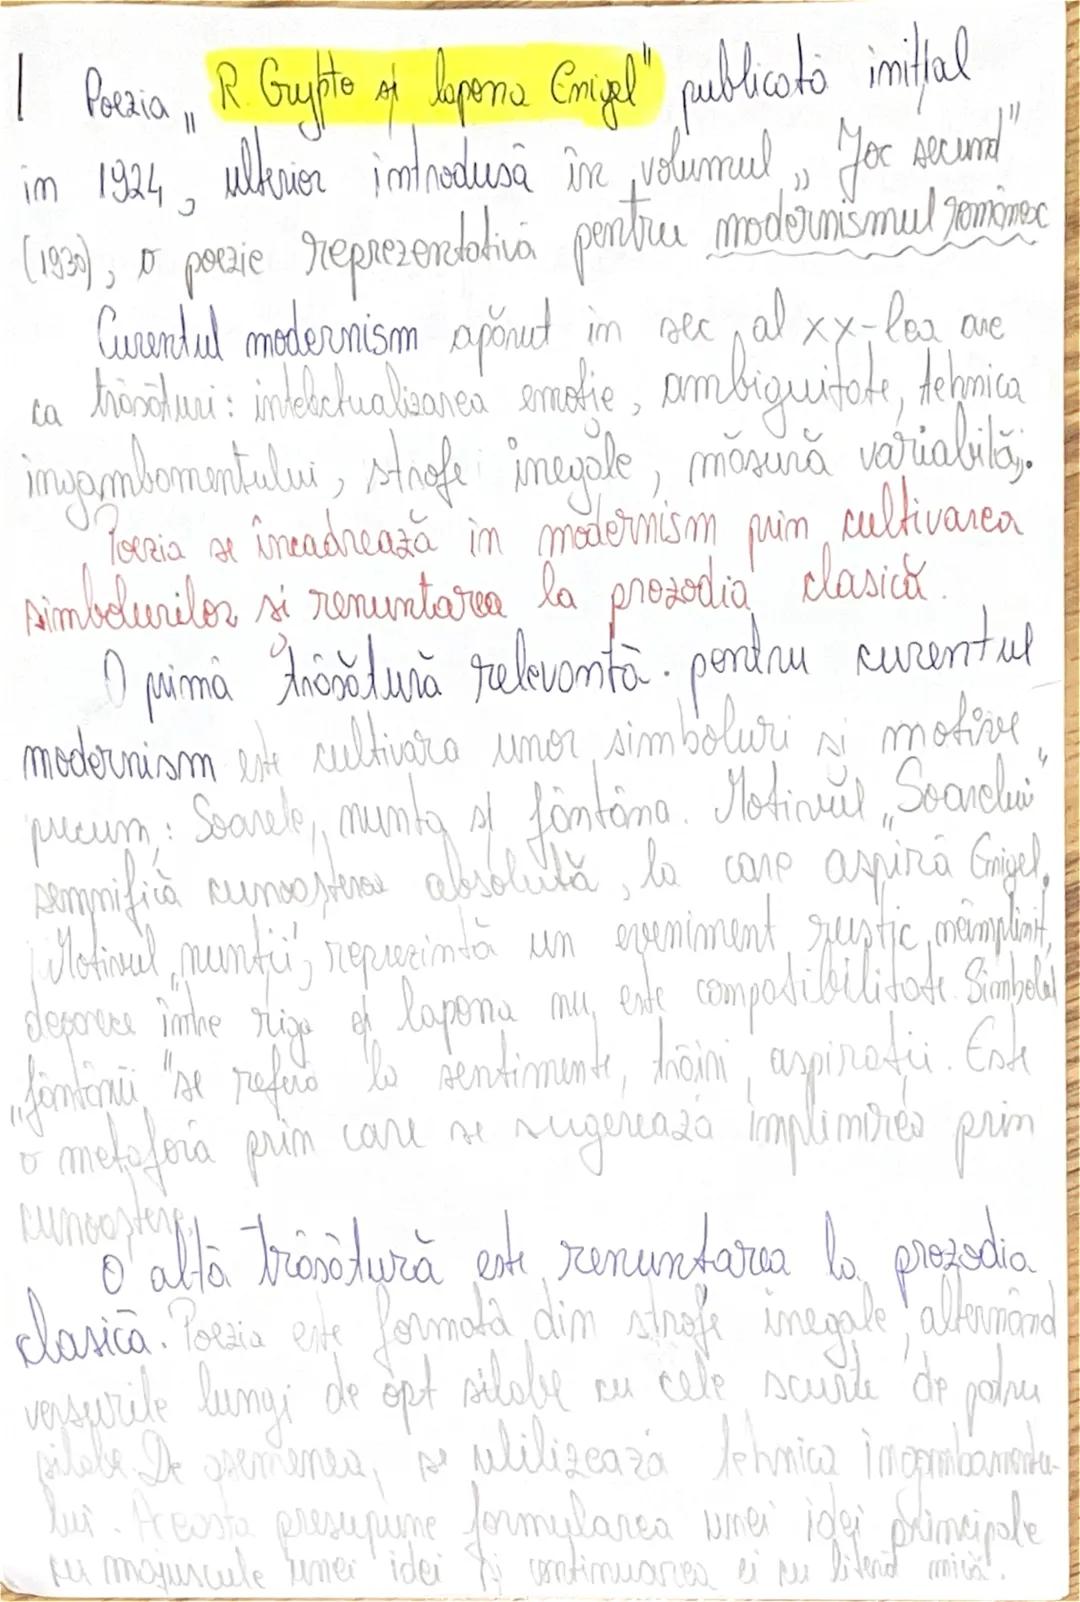 I Poezia „R. Crypto și lapona Enigel" publicată inițial
în 1924, ulterior introdusă în volumul „Joc secund"
(1930), o poezie reprezentativă pentru modernismul românesc
Curentul modernism apărut în sec al XX-lea are
ca trăsături: intelectualizarea emoție, ambiguitate, tehnica
ingambamentului, strofe inegale, măsură variabilă.
Poezia se încadrează în modernism prin cultivarea
simbolurilor si renuntarea la prozodia clasică.
O primă trăsătură relevantă pentru curentul
modernism este cultivara unor simboluri si motive
precum: Soarele, nunta și fântâna. Motivul „Soarelui"
semnifică cunoașterea absolută, la care aspiră Enigel.
Motivul „nunții" reprezintă un eveniment rustic, neîmplinit,
deoarece între riga și lapona nu este compatibilitate. Simbolul
„fântânii" se referă la sentimente, trăiri, aspirații. Este
o metaforă prin care se sugerează împlinirea prin
cunoaștere.
O altă trăsătură este renuntarea la prozodia
clasică. Poezia este formată din strofe inegale, alternând
versurile lungi de opt silabe cu cele scurte de patru
silabe. De asemenea, se utilizează tehnica ingambamentu-
lui. Aceasta presupune formularea unei idei principale
cu majuscule unei idei și continuarea ei cu literă mică.